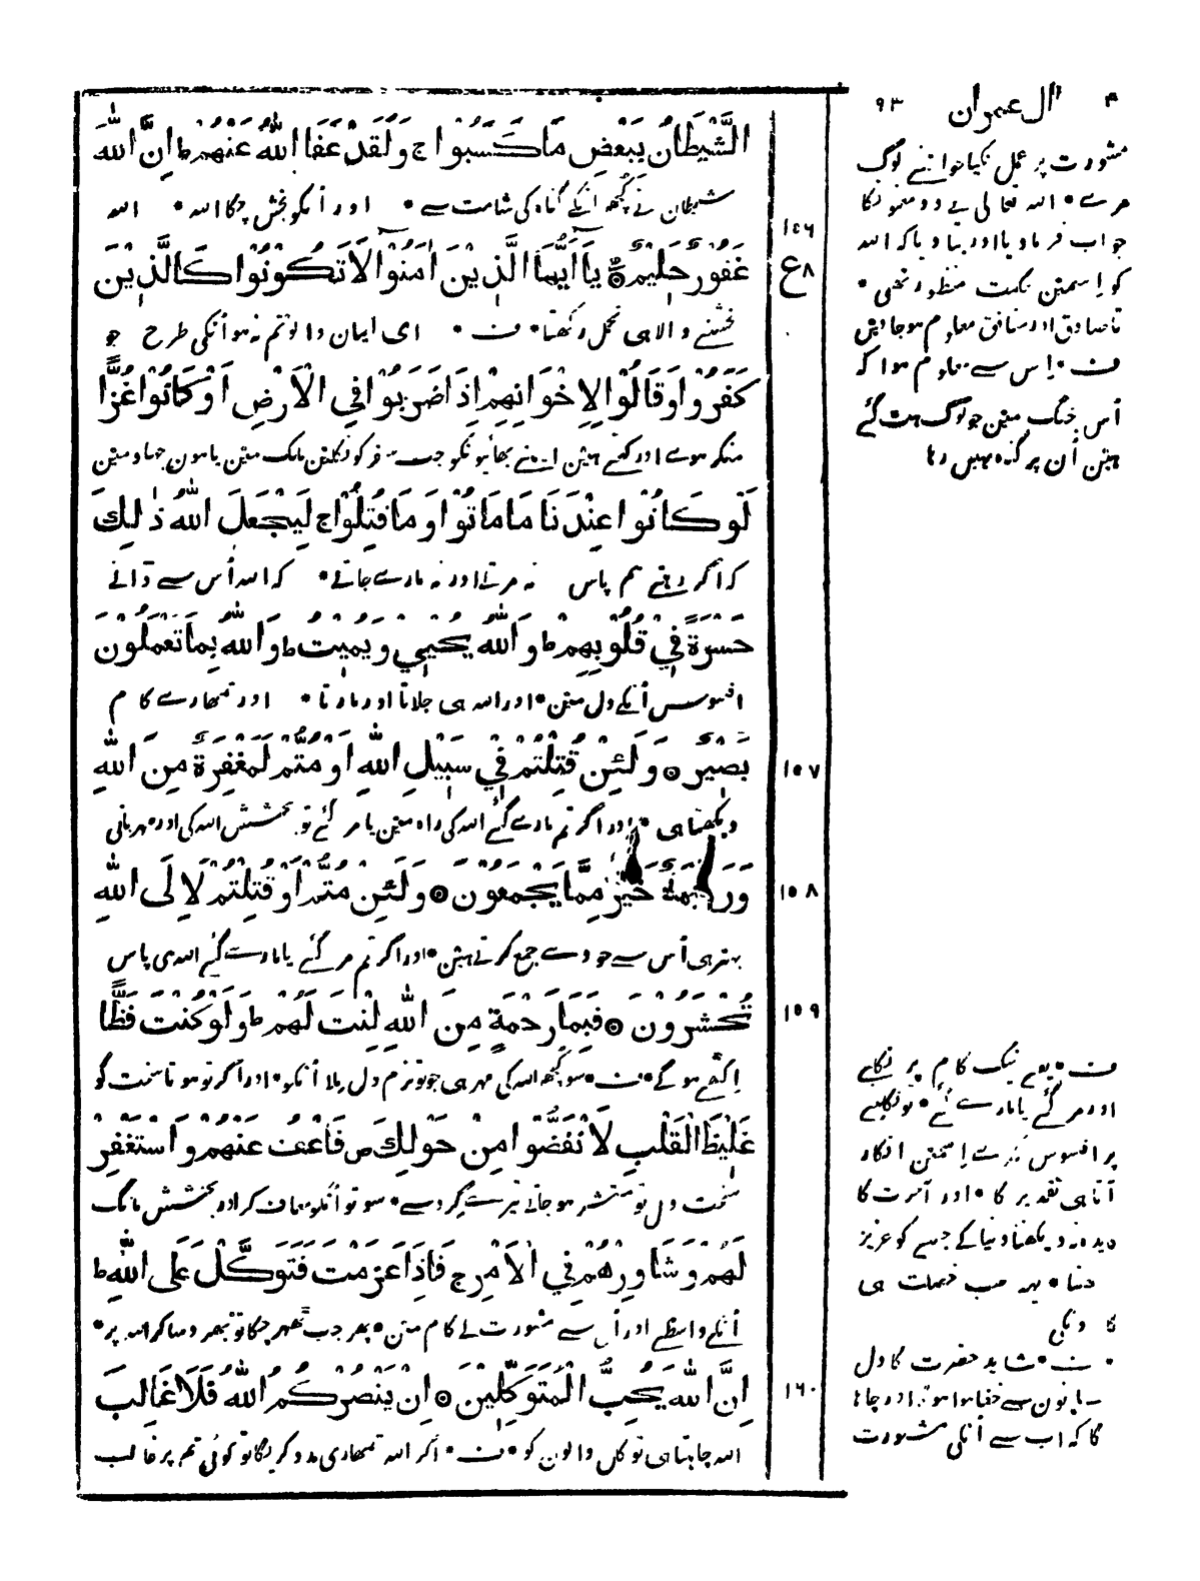 ۳ ال عمران ۹۳
الشَّيْطَانُ بِبَعْضِ مَا كَسَبُوا ج وَلَقَدْ عَفَا اللهُ عَنْهُمْ ط اِنَّ اللهَ
شیطان نے کچھ انکے گناہ کی شامت سے • اور انکو بخش چکا اللہ • اللہ
۱۵۶
غَفُورٌ حَلِيْمٌ ۞ يَا اَيُّهَا الَّذِيْنَ اٰمَنُوْا لَا تَكُوْنُوْا كَالَّذِيْنَ
ع ۸
بخشنے والا ہی تحمل رکھتا • ف • ای ایمان والو تم نہ ہو انکی طرح جو
كَفَرُوْا وَقَالُوْا لِاِخْوَانِهِمْ اِذَا ضَرَبُوْا فِي الْاَرْضِ اَوْ كَانُوْا غُزًّا
منکر ہوے اور کہتے ہین اپنے بھائیونکو جب سفر کو نکلین ملک مین یا ہون جہاد مین
لَوْ كَانُوْا عِنْدَنَا مَا مَاتُوْا وَ مَا قُتِلُوْا ج لِيَجْعَلَ اللهُ ذٰلِكَ
کہ اگر رہتے ہم پاس نہ مرتے اور نہ مارے جاتے • کہ اللہ اُس سے ڈالے
حَسْرَةً فِيْ قُلُوْبِهِمْ ط وَاللهُ يُحْيِيْ وَ يُمِيْتُ ط وَاللهُ بِمَا تَعْمَلُوْنَ
افسوس اُنکے دل مین • اور اللہ ہی جلاتا اور مارتا • اور تمھارے کام
بَصِيْرٌ ۞ وَ لَئِنْ قُتِلْتُمْ فِيْ سَبِيْلِ اللهِ اَوْ مُتُّمْ لَمَغْفِرَةٌ مِنَ اللهِ
۱۵۷
دیکھتا ہی • اور اگر تم مارے گئے اللہ کی راہ مین یا مر گئے تو بخشش اللہ کی اور مہربانی
وَرَحْمَةٌ خَيْرٌ مِمَّا يَجْمَعُوْنَ ۞ وَلَئِنْ مُتُّمْ اَوْ قُتِلْتُمْ لَاِلَى اللهِ
۱۵۸
بہتر ہی اُس سے جو وے جمع کرتے ہین • اور اگر تم مر گئے یا مارے گئے اللہ ہی پاس
تُحْشَرُوْنَ ۞ فَبِمَا رَحْمَةٍ مِنَ اللهِ لِنْتَ لَهُمْ ط وَ لَوْ كُنْتَ فَظًّا
۱۵۹
اِکٹھے ہوگے • ف • سو کچھ اللہ کی مہر ہی جو تو نرم دل ملا اُنکو • اور اگر تو ہوتا سخت گو
غَلِيْظَ الْقَلْبِ لَانْفَضُّوْا مِنْ حَوْلِكَ ص فَاعْفُ عَنْهُمْ وَاسْتَغْفِرْ
سخت دل تو منتشر ہو جاتے تیرے گرد سے • سو تو اُنکو معاف کر اور بخشش مانگ
لَهُمْ وَ شَاوِرْهُمْ فِي الْاَمْرِ ج فَاِذَا عَزَمْتَ فَتَوَكَّلْ عَلَى اللهِ ط
اُنکے واسطے اور اُن سے مشورت لے کام مین • پھر جب ٹھہر چکا تو بھروسا کر اللہ پر •
اِنَّ اللهَ يُحِبُّ الْمُتَوَكِّلِيْنَ ۞ اِنْ يَنْصُرْكُمُ اللهُ فَلَا غَالِبَ
۱۶۰
اللہ چاہتا ہی توکل والون کو • ف • اگر اللہ تمھاری مدد کریگا تو کوئی تم پر غالب
مشورت پر عمل نکیا جو اتنے لوگ
مرے • اللہ تعالی نے دونو نکا
جواب فرما دیا اور بتا دیا کہ اللہ
کو اِسمین حکمت منظور تھی •
تا صادق اور منافق معلوم ہو جاوین
ف • اِس سے معلوم ہوا کہ
اُس جنگ مین جو لوگ ہٹ گئے
ہین اُن پر گناہ نہیں رہا
ف • یعنے نیک کام پر نکلے
اور مر گئے یا مارے گئے • تو نکلنے
پر افسوس نکرے اِسمین انکار
آتا ہی تقدیر کا • اور آخرت کا
فایدہ نہ دیکھنا دنیا کے جینے کو عزیز
رکھنا • یہہ سب خصلت ہی
کافرونکی
ف • شاید حضرت کا دل
مسلمانون سے خفا ہوا ہوگا اور چاہا
ہوگا کہ اب سے اُنکی مشورت